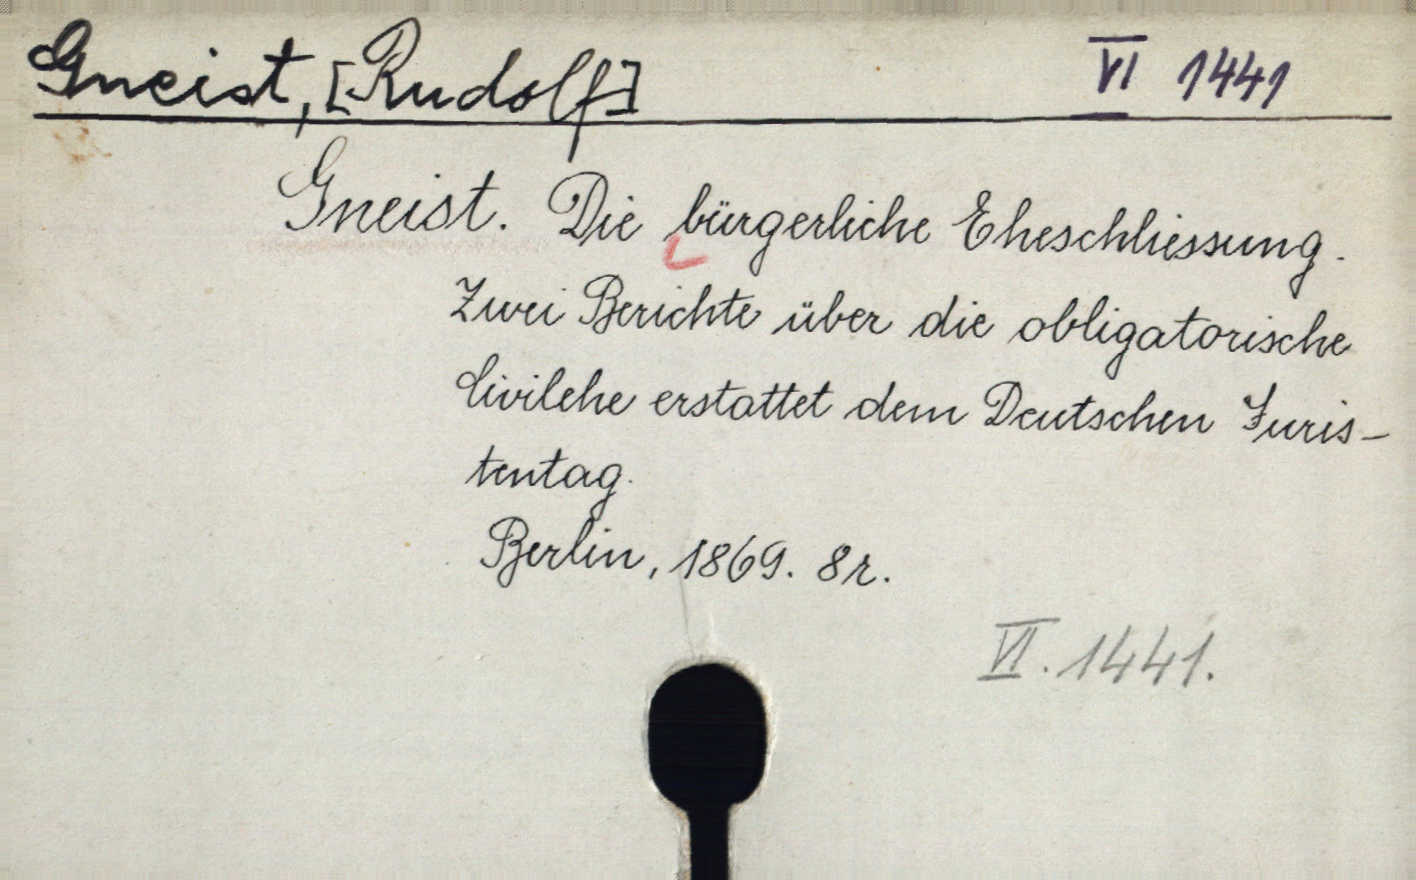 Gneist, [Rudolf] VI 1441
Gneist. Die bürgerliche Eheschliessung.
Zwei Berichte über die obligatorische
Civilehe erstattet dem Deutschen Juris-
tentag.
Berlin, 1869. 8r.
VI. 1441.